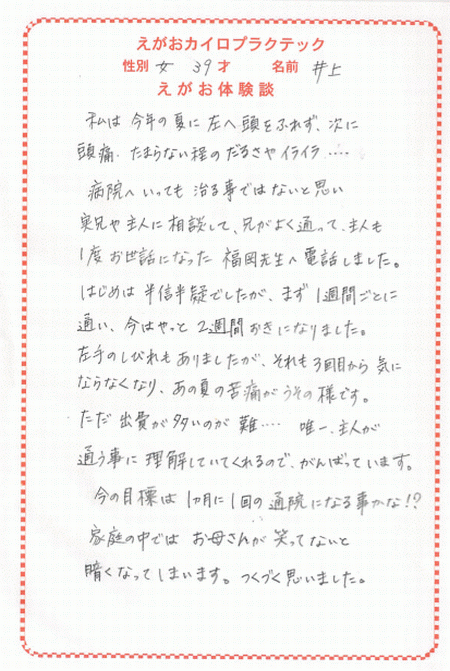 えがおカイロプラクテック
性別 女 39才 名前 井上
えがお体験談
私は 今年の夏に 左へ 頭をふれず、次に
頭痛、たまらない程の だるさや イライラ ‥‥
病院へ いっても 治る事ではないと思い
実兄や主人に 相談して、兄がよく通って、主人も
1度 お世話になった 福岡先生へ 電話しました。
はじめは 半信半疑でしたが、まず 1週間ごとに
通い、今はやっと 2週間おきになりました。
左手のしびれもありましたが、それも3回目から 気に
ならなくなり、あの夏の苦痛がうその様です。
ただ 出費が多いのが 難‥‥ 唯一、主人が
通う事に 理解していてくれるので、がんばっています。
今の目標は 1ヵ月に1回の通院になる事かな!?
家庭の中では お母さんが 笑ってないと
暗くなってしまいます。つくづく思いました。